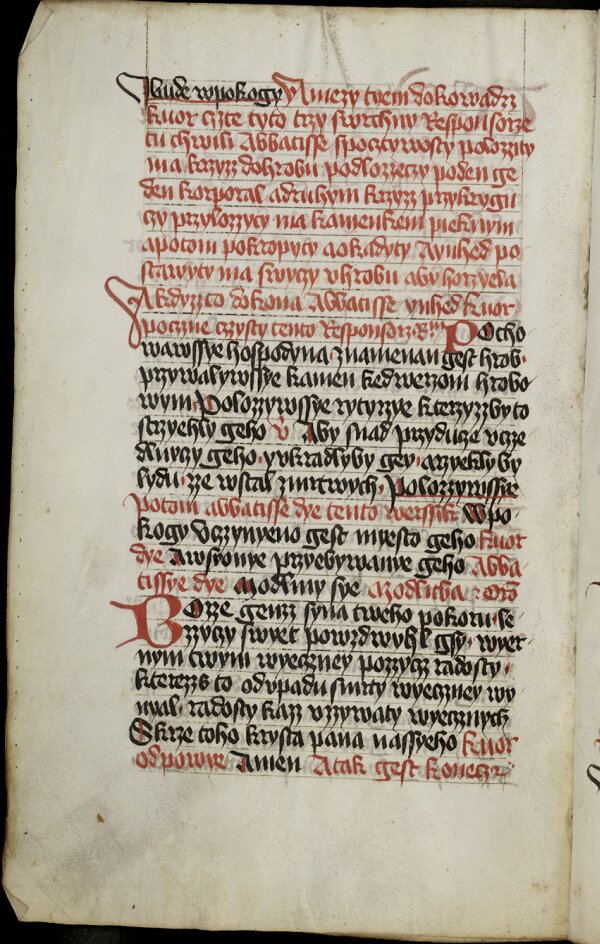 bude wpokogy A mezy tyem dokowadz
kuor czte tyto trzy swrchny Responsorze
tu chwili Abbatisse spocztywosty polozity
ma krzyz dohrobu podlozeczy poden ge
den korporal adruhym krzyz przykrygu
czy przylozyty ma kamenkem pieknym
apotom pokropyty aokadyty Aynhed po
stawyty ma swyczy vhrobu aby horzyela
A kdyz to dokona Abbatisse ynhed kuor
poczne czysty tento Responsorz Pocho
wawssye hospodyna znamenan gest hrob
przywalywssye kamen kedwerzom hrobo
wym Polozywssye rytyrzye kterzyzby to
strzyehly geho v Aby snad przyduce vcze
dlnyczy geho yvkradlyby gey arzyekly by
lydu ze wstal zmrtwych Polozywssye
potom abbatisse dye tento werssik Wpo
kogy Vczynyeno gest myesto geho kuor
dye Awsyonye przyebywanye geho Abba
tissye dye Modlmy sye Modlitba
Boze genz syna tweho pokoru le
zyczy swyet powzdwyhl gsy wyer
nym twym wyeczney pozycz radosty
kterezs to odvpadu smrty wyeczney wy
nyal radosty kaz vzywaty wyecznych
Skrze toho krysta pana nassyeho kuor
odpowye Amen Atak gest konecz